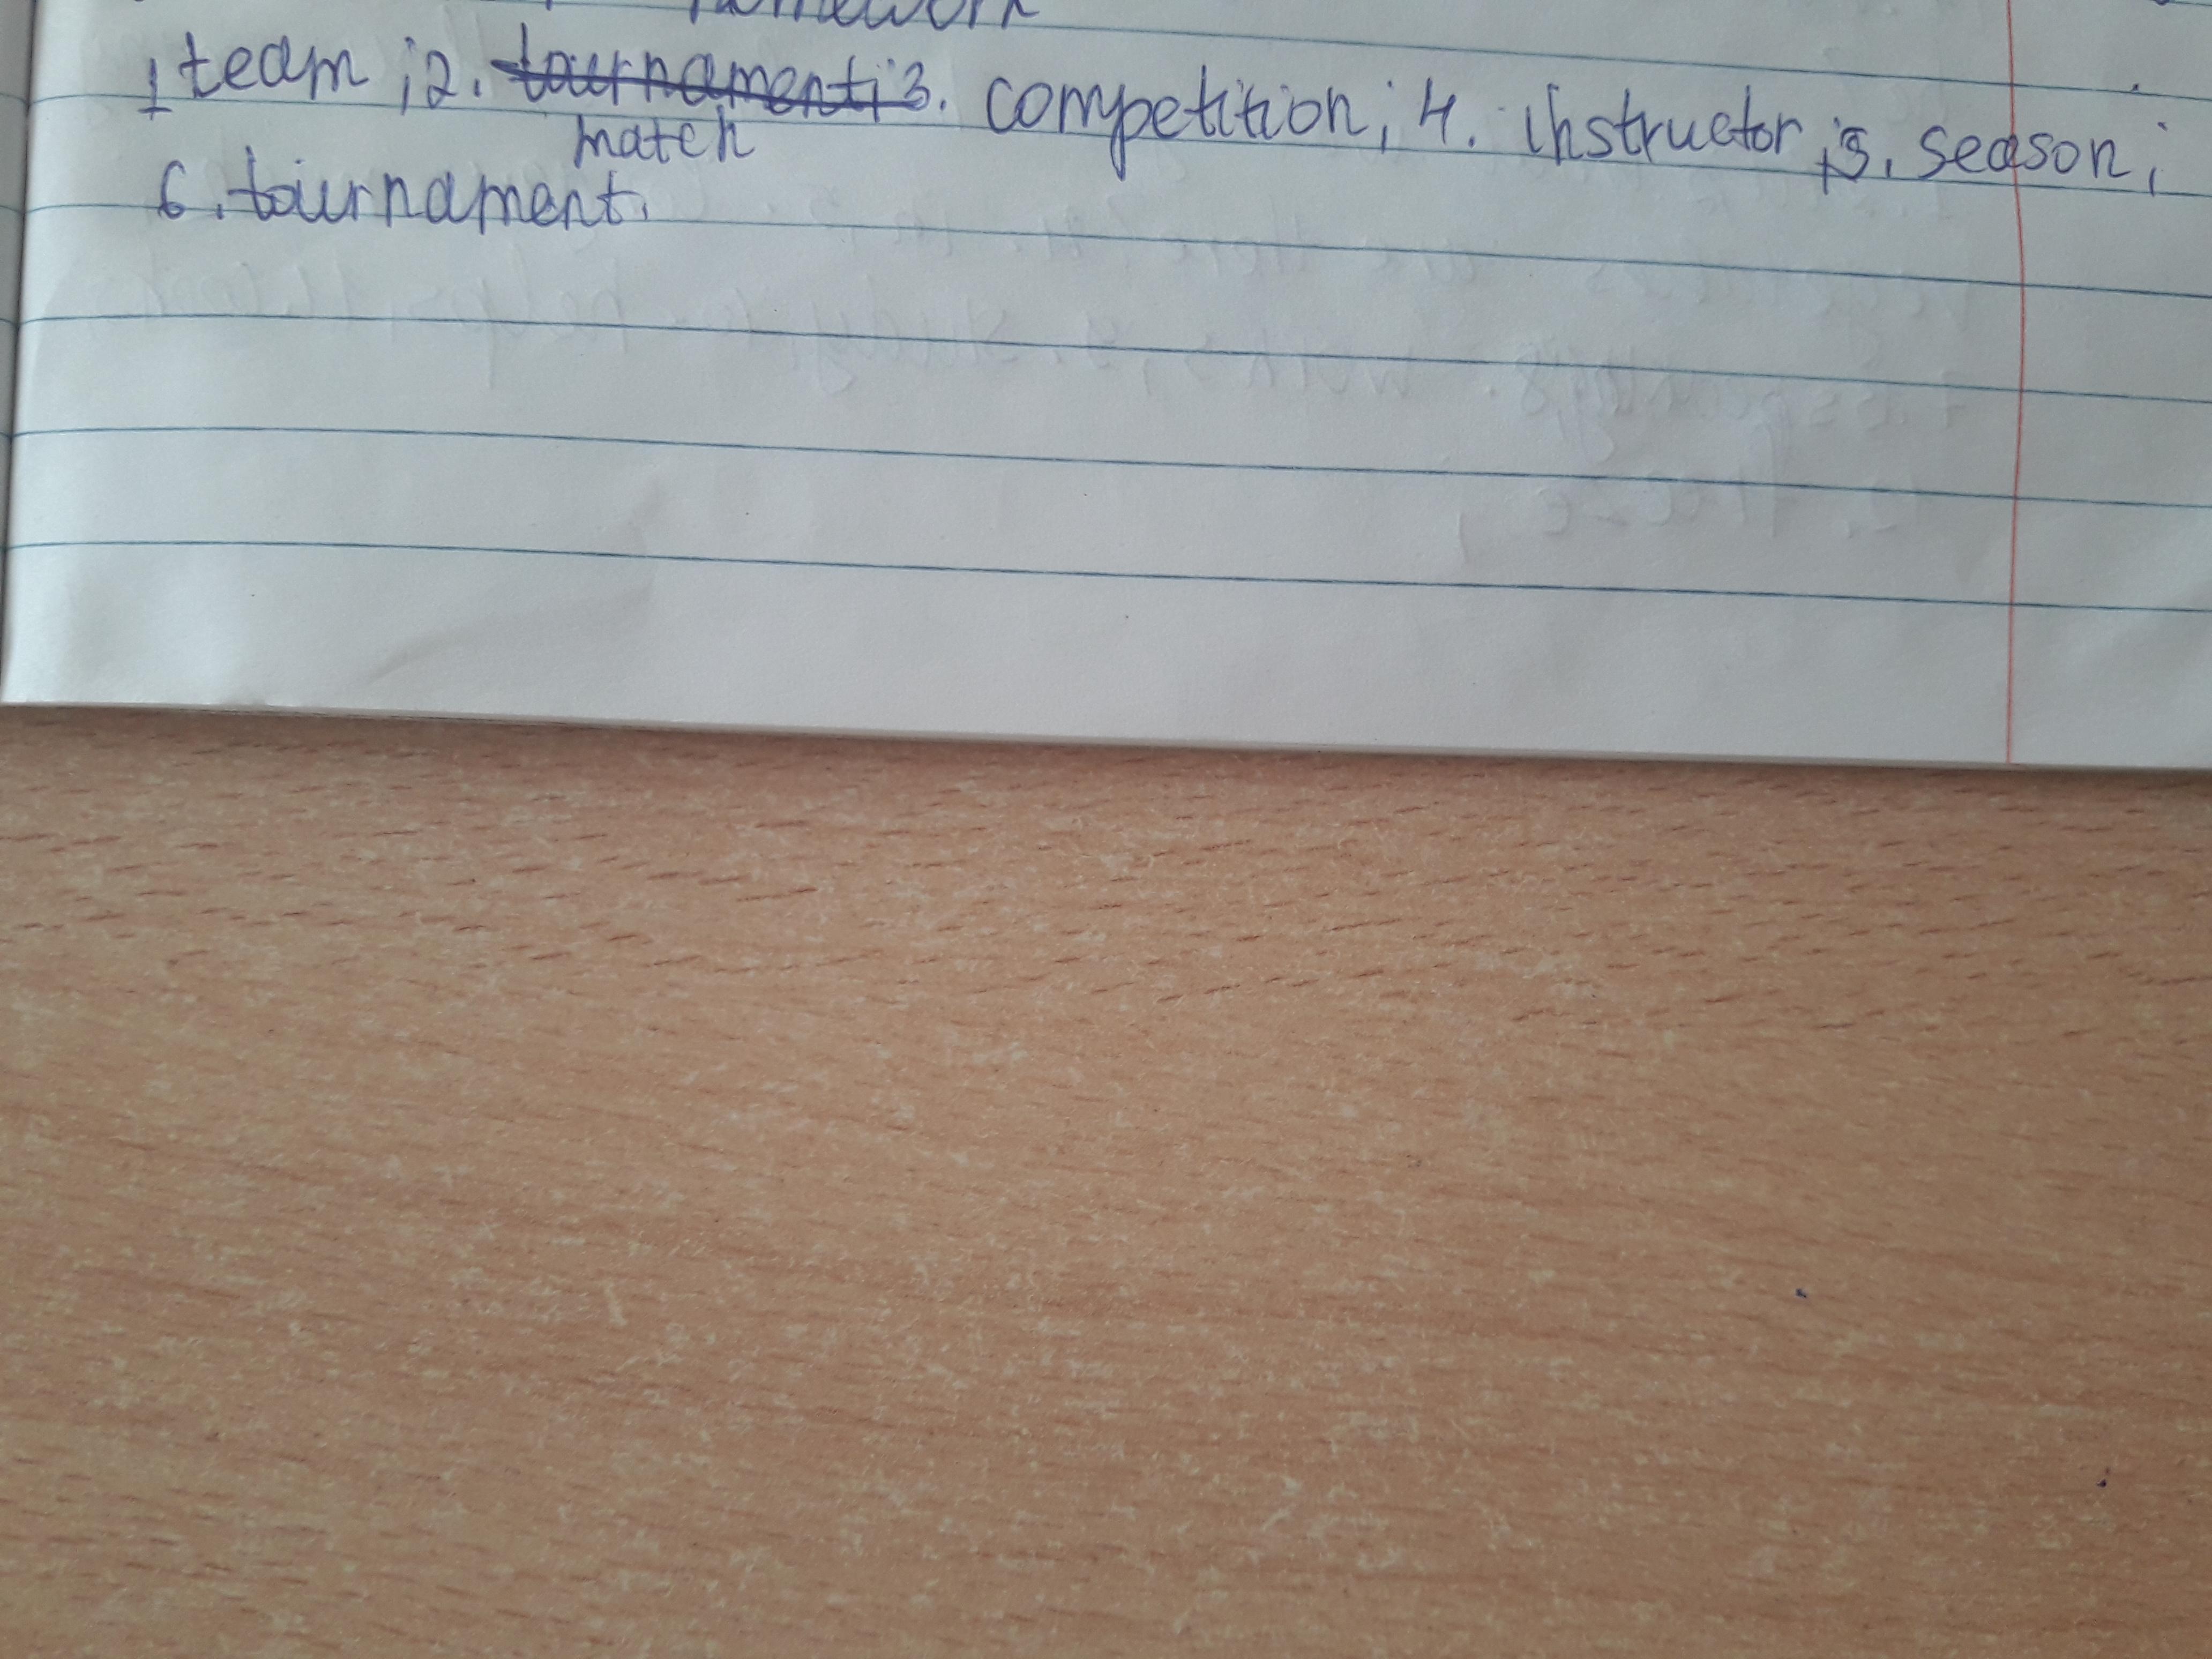 homework
1 team ; 2. tournament; 3. competition; 4. instructor ; 5. season;
match
6. tournament.